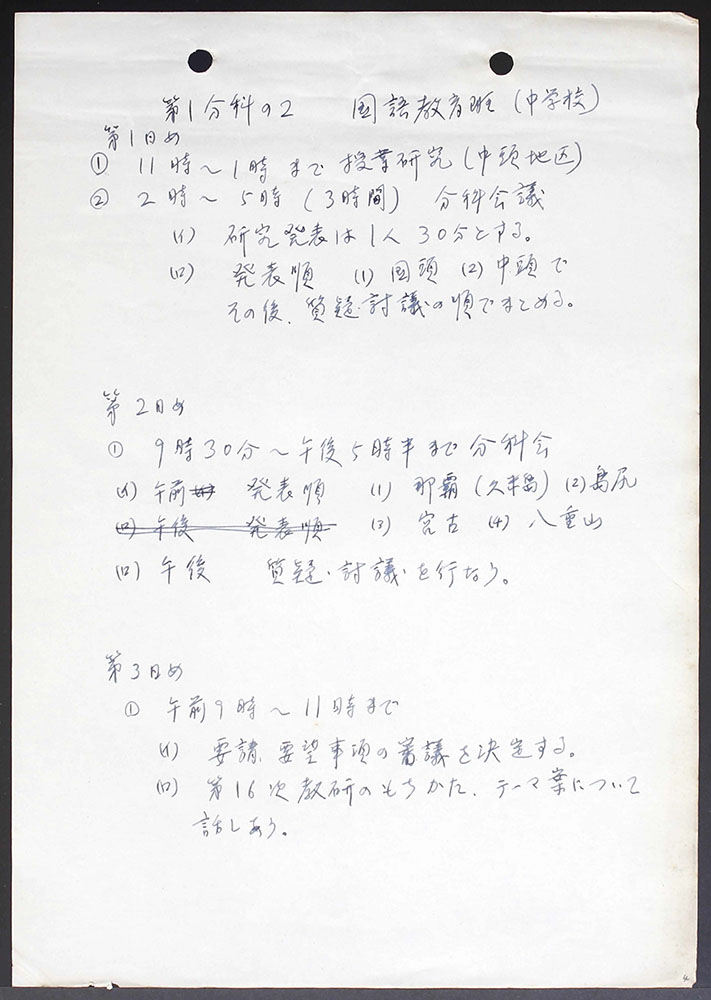 第1分科の2　国語教育班（中学校）
第1日め
① 11時～1時まで 授業研究（中頭地区）
② 2時～5時（3時間）　分科会議
(イ) 研究発表は1人30分とする。
(ロ) 発表順 (1) 国頭 (2) 中頭で
その後、質疑・討議の順でまとめる。
第2日め
① 9時30分～午後5時半まで分科会
(イ) 午前 発表順 (1) 那覇（久米島） (2) 島尻
(ロ) 午後 発表順 (3) 宮古 (4) 八重山
(ロ) 午後 質疑・討議を行なう。
第3日め
① 午前9時～11時まで
(イ) 要請、要望事項の審議を決定する。
(ロ) 第16次教研のもちかた、テーマ案について
話しあう。
4